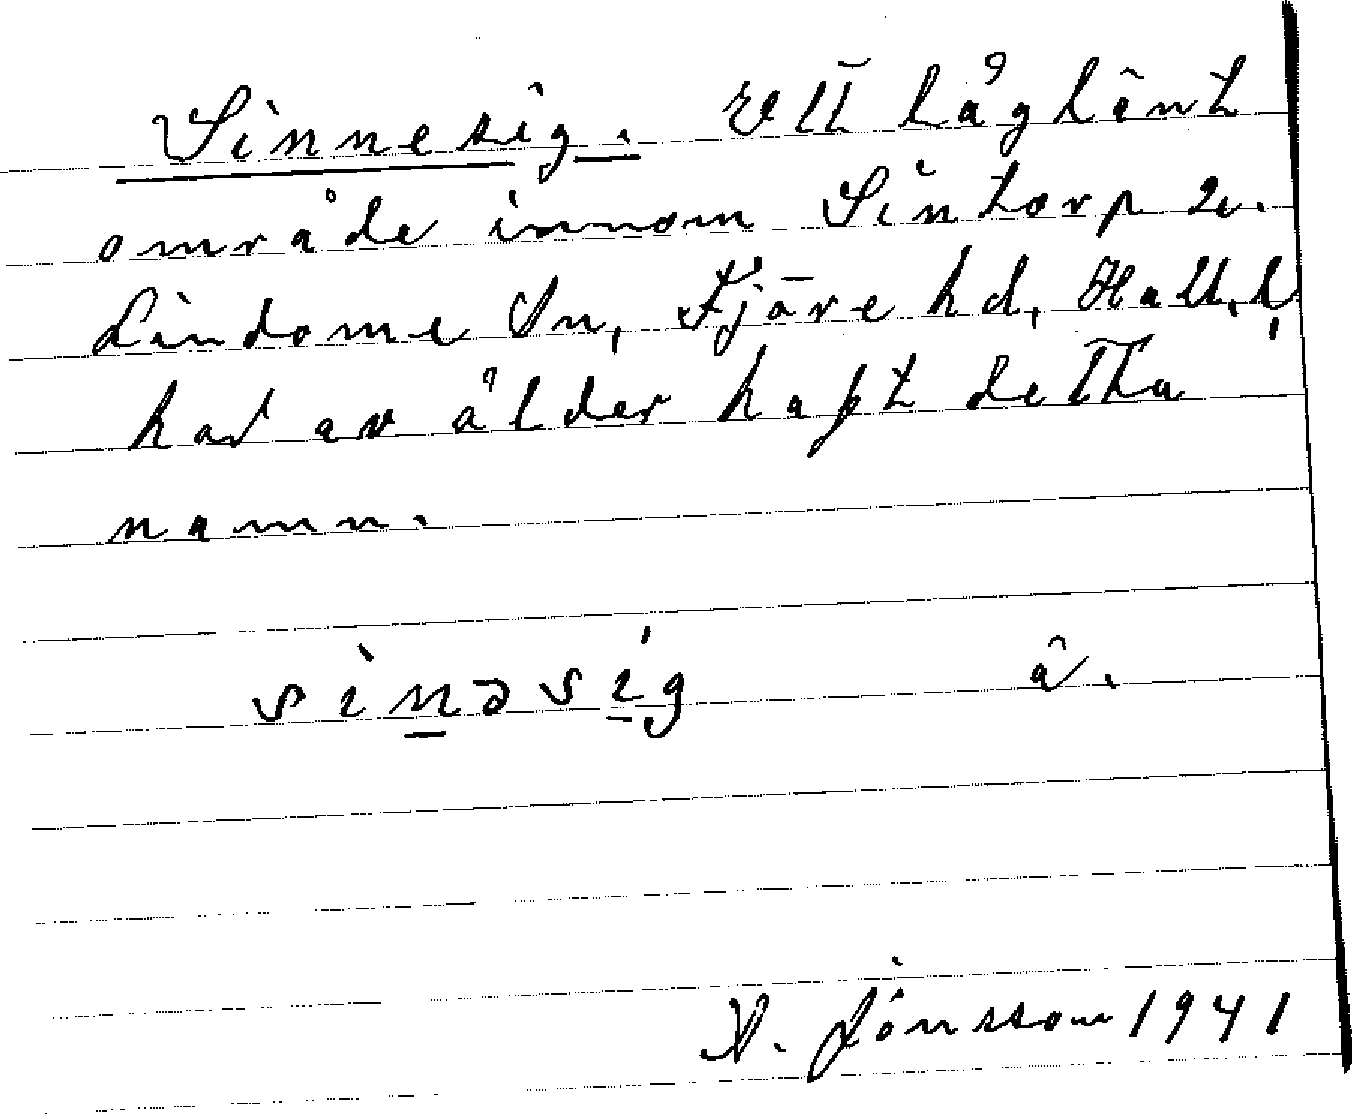 Sinnesig. Ett låglänt
område innom Sintorp 2.
Lindome Sn, Fjäre hd, Hall. l,
har av ålder haft detta
namn.
sìnəsíg â.
A. Jönsson 1941